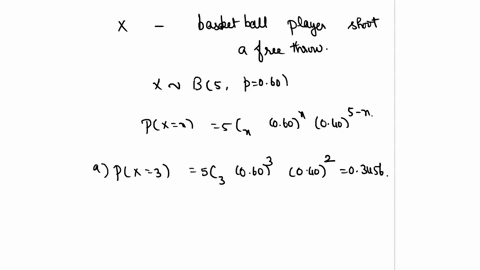 X - basket ball player shoot
a free throw.
X ~ B(5, p=0.60)
P(X=x) = 5Cₓ (0.60)ˣ (0.40)⁵⁻ˣ.
a) P(X=3) = 5C₃ (0.60)³ (0.40)² = 0.3456.